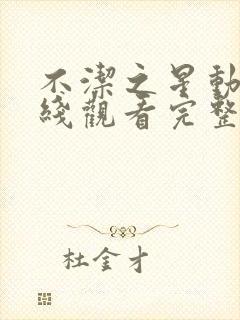 不潔之星動
綫觀看完整
杜金才